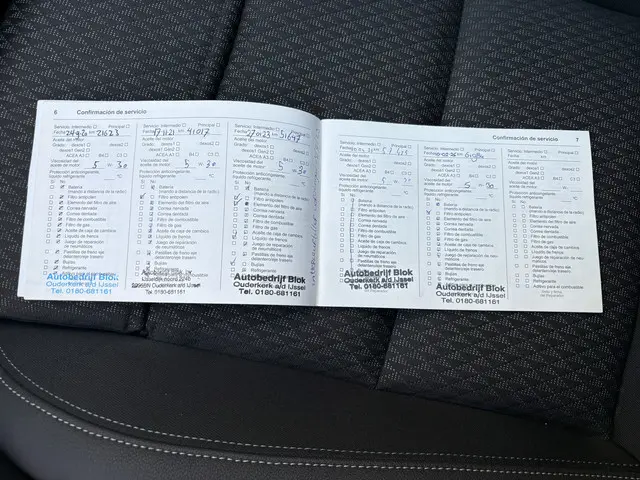 6 Confirmación de servicio
Servicio: Intermedio Principal
Fecha 24 9 20 km 21623
Aceite del motor
Grado: dexos1 dexos2
dexos1 Gen2
ACEA A3 B4 C3
Viscosidad del aceite de motor: 5 - 30
Protección anticongelante,
líquido refrigerante °C
Sí No
Batería
(mando a distancia de la radio)
Filtro antipolen
Elemento del filtro de aire
Correa nervada
Correa dentada
Filtro de combustible
Filtro de gas
Aceite de caja de cambios
Líquido de frenos
Juego de reparación
de neumáticos
Pastillas de freno eje
delantero/eje trasero
Bujías
Refrigerante
Autobedrijf Blok
Ouderkerk a/d IJssel
Tel. 0180-681161
Servicio: Intermedio Principal
Fecha 17 11 21 km 41017
Aceite del motor
Grado: dexos1 dexos2
dexos1 Gen2
ACEA A3 B4 C3
Viscosidad del
aceite de motor: 5 - 30
Protección anticongelante,
líquido refrigerante °C
Sí No
Batería
(mando a distancia de la radio)
Filtro antipolen
Elemento del filtro de aire
Correa nervada
Correa dentada
Filtro de combustible
Filtro de gas
Aceite de caja de cambios
Líquido de frenos
Juego de reparación
de neumáticos
Pastillas de freno eje
delantero/eje trasero
Bujías
Autobedrijf Blok
Ouderkerk a/d IJssel
Tel. 0180-681161
Servicio: Intermedio Principal
Fecha 27 01 23 km 51647
Aceite del motor
Grado: dexos1 dexos2
dexos1 Gen2
ACEA A3 B4 C3
Viscosidad del
aceite de motor: 5 - 30
Protección anticongelante,
líquido refrigerante °C
Sí No
Batería
(mando a distancia de la radio)
Filtro antipolen
Elemento del filtro de aire
Correa nervada
Correa dentada
Filtro de combustible
Filtro de gas
Aceite de caja de cambios
Líquido de frenos
Juego de reparación
de neumáticos
Pastillas de freno eje
delantero/eje trasero
Autobedrijf Blok
Ouderkerk a/d IJssel
Tel. 0180-681161
Confirmación de servicio 7
Servicio: Intermedio Principal
Fecha km
Aceite del motor
Grado: dexos1 dexos2
dexos1 Gen2
ACEA A3 B4 C3
Viscosidad del
aceite de motor:
Protección anticongelante,
líquido refrigerante °C
Sí No
Batería
(mando a distancia de la radio)
Filtro antipolen
Elemento del filtro de aire
Correa nervada
Correa dentada
Filtro de combustible
Filtro de gas
Aceite de caja de cambios
Líquido de frenos
Juego de reparación
de neumáticos
Pastillas de freno eje
delantero/eje trasero
Autobedrijf Blok
Ouderkerk a/d IJssel
Tel. 0180-681161
Servicio: Intermedio Principal
Fecha km
Aceite del motor
Grado: dexos1 dexos2
dexos1 Gen2
ACEA A3 B4 C3
Viscosidad del
aceite de motor: 5 - 30
Protección anticongelante,
líquido refrigerante °C
Sí No
Batería
(mando a distancia de la radio)
Filtro antipolen
Elemento del filtro de aire
Correa nervada
Correa dentada
Filtro de combustible
Filtro de gas
Aceite de caja de cambios
Líquido de frenos
Juego de reparación
de neumáticos
Pastillas de freno eje
delantero/eje trasero
Bujías
Autobedrijf Blok
Ouderkerk a/d IJssel
Tel. 0180-681161
Servicio: Intermedio Principal
Fecha km
Aceite del motor
Grado: dexos1 dexos2
dexos1 Gen2
ACEA A3 B4 C3
Viscosidad del
aceite de motor:
Protección anticongelante,
líquido refrigerante °C
Sí No
Batería
(mando a distancia de la radio)
Filtro antipolen
Elemento del filtro de aire
Correa nervada
Correa dentada
Filtro de combustible
Filtro de gas
Aceite de caja de cambios
Líquido de frenos
Juego de reparación
de neumáticos
Pastillas de freno eje
delantero/eje trasero
Bujías
Refrigerante
Aditivo para el combustible